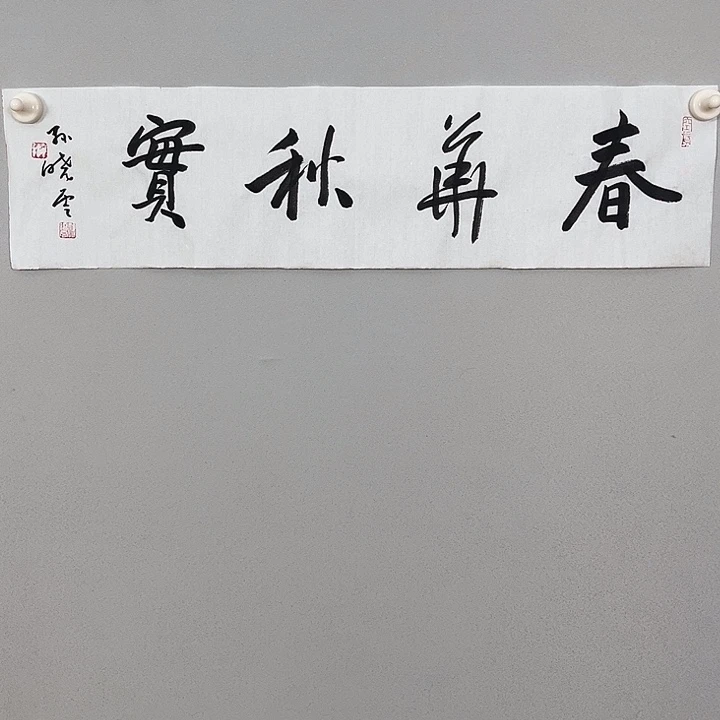 春華秋實
孙晓云